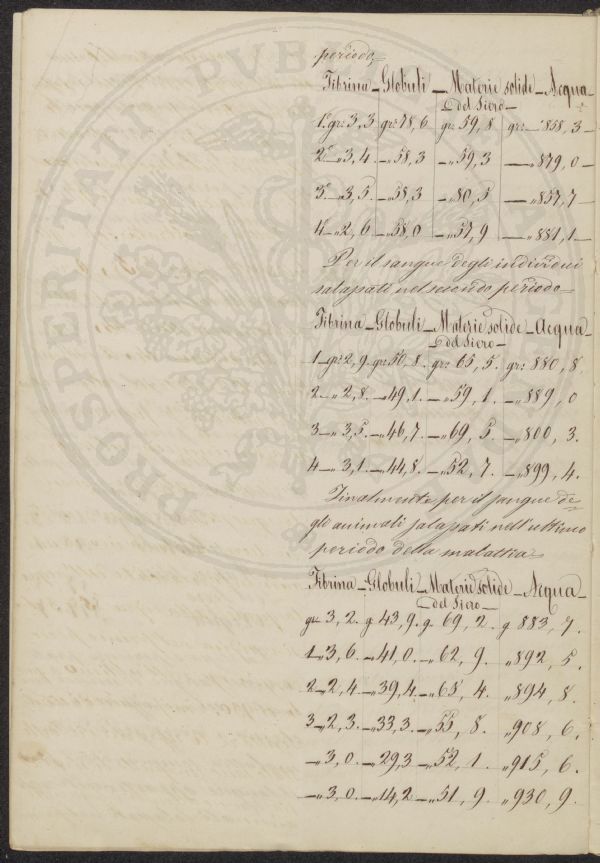 periodo=
Fibrina_Globuli_Materie solide_Acqua_
del Siero_
1° gr: 3, 3 gr: 78, 6 gr: 59, 8 gr: —"858, 3—
2° —"3, 4. —"58, 3 —"59, 3 —"879, 0—
3° —"3, 5. —"58, 3 —"80, 5 —"857, 7—
4° —"2, 6 —"58, 0 —"57, 9 —"881, 1—
Per il sangue degli individui
salapati nel secondo periodo—
Fibrina_Globuli_Materie solide_Acqua_
del Siero—
1_gr: 2, 9. gr: 50, 8. gr: 65, 5. gr: 880, 8.
2—"2, 8. —"49, 1. —"59, 1. —"889, 0
3—"3, 5. —"46, 7. —"69, 5. —"800, 3.
4—"3, 1. —"44, 8. —"52, 7. —"899, 4.
Finalmente per il sangue de=
gli animali salapati nell'ultimo
periodo della malattia—
Fibrina_Globuli_Materie solide_Acqua_
del Siero—
gr 3, 2. g. 43, 9. g. 69, 2. g. 883, 7.
1—"3, 6. —"41, 0. —"62, 9. —"892, 5.
2—"2, 4. —"39, 4. —"63, 4. "894, 8.
3—"2, 3. —"33, 3. —"55, 8. "908, 6.
—"3, 0. —"29, 3 —"52, 1. —"915, 6.
—"3, 0. —"14, 2 —"51, 9. "930, 9.
PROSPERITATI PUBLICAE